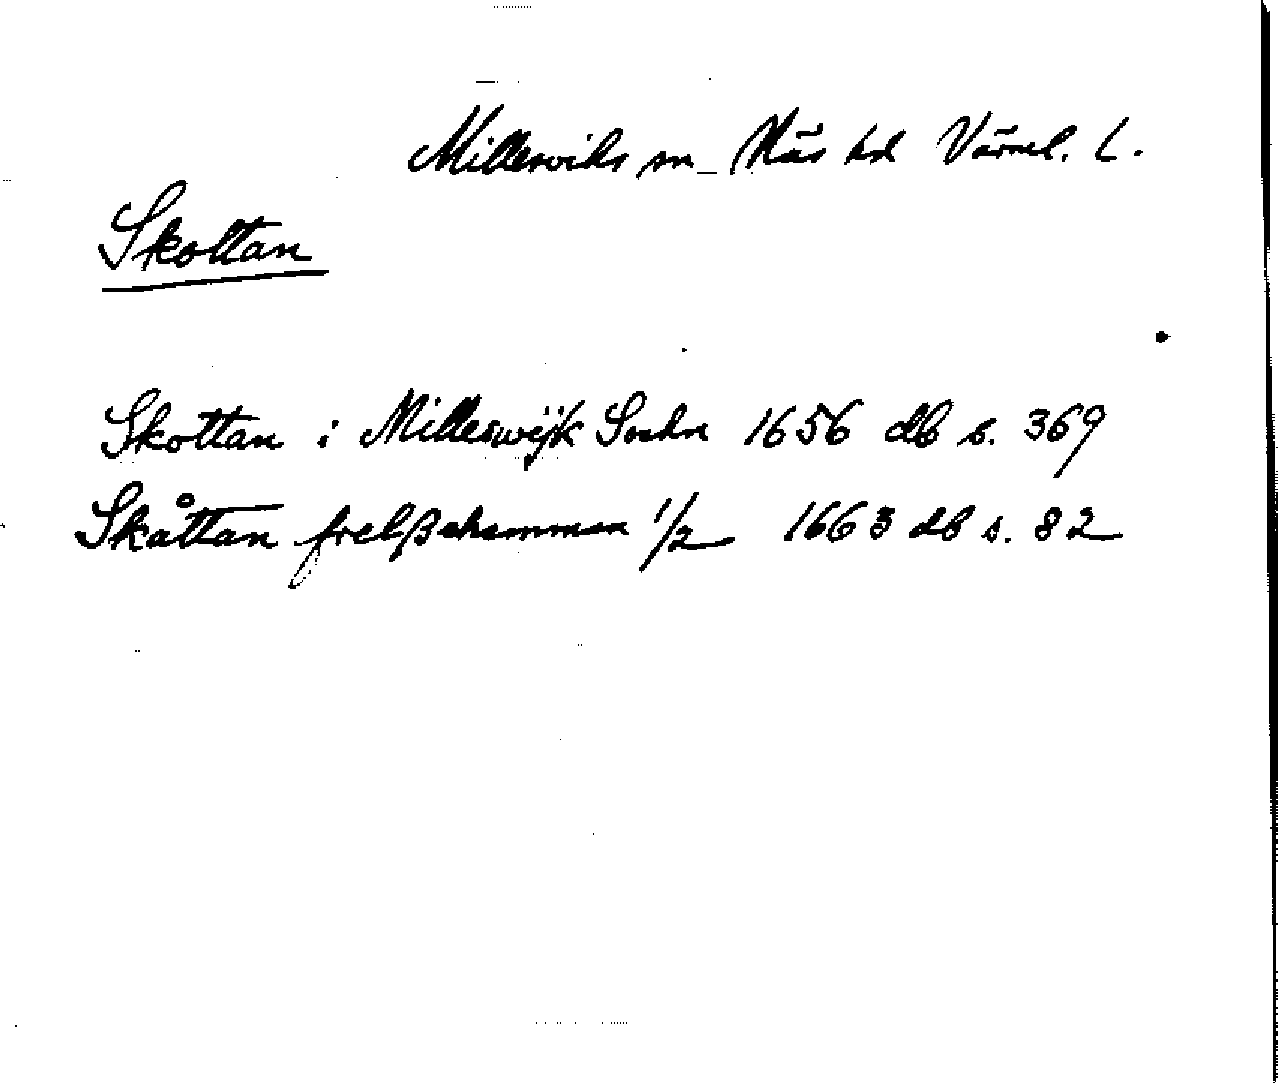 Millesviks sn Näs hd Värml. L.
Skottan
Skottan i Milleswijk Sochn 1656 db s. 369
Skåttan frelßehemman 1/2 1663 db s. 82